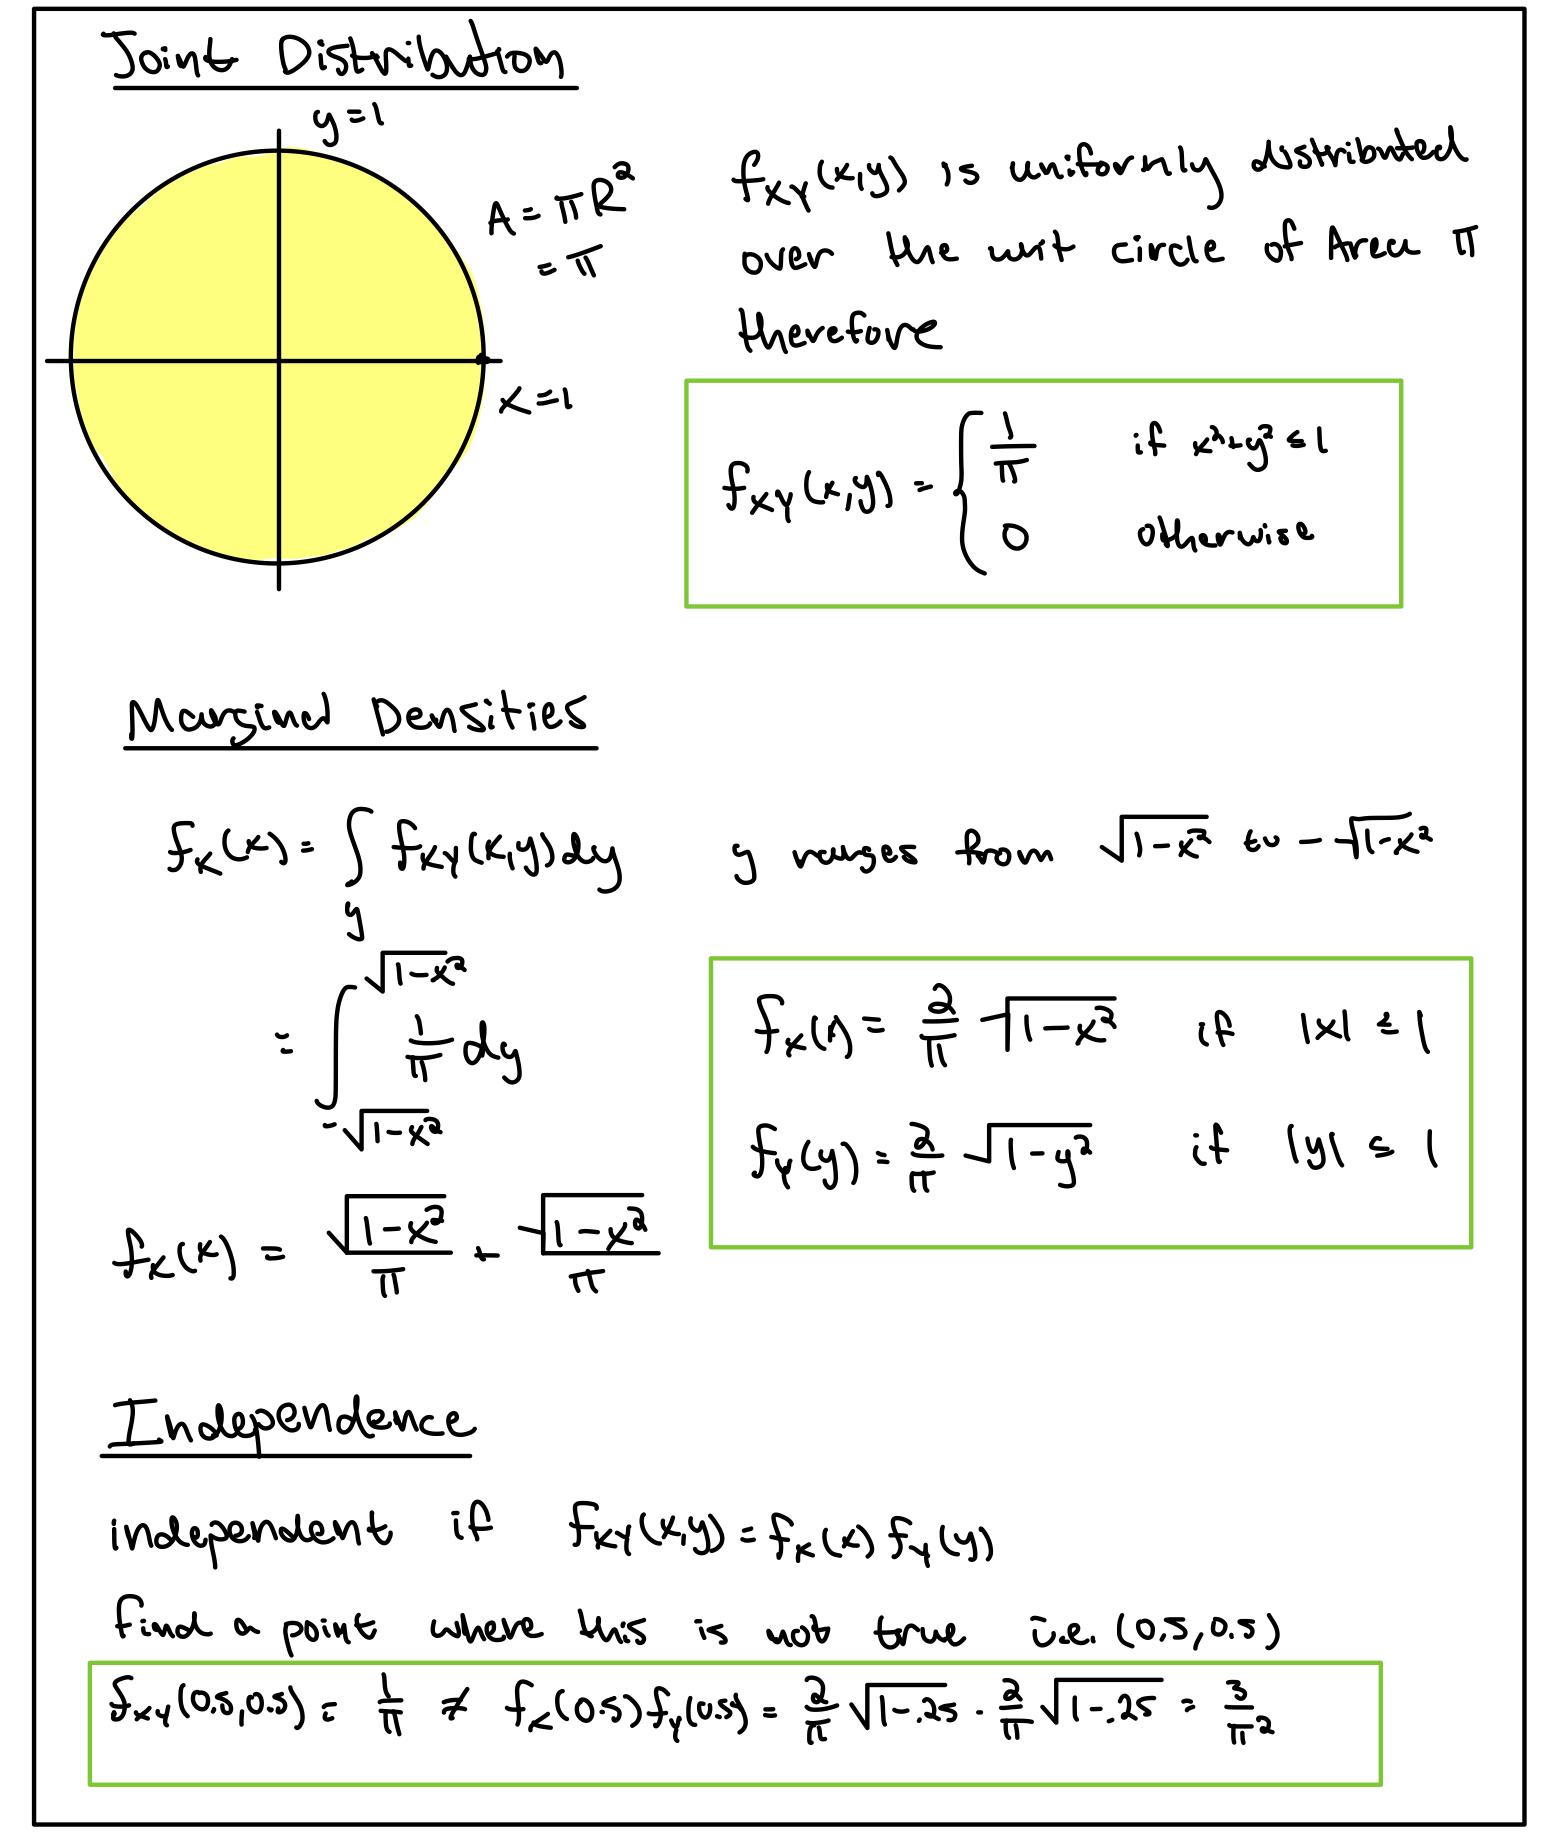 Joint Distribution
y=1
A = πR²
= π
x=1
f_XY(x,y) is uniformly distributed
over the unit circle of Area π
therefore
f_XY(x,y) = { 1/π if x²+y² ≤ 1
0 otherwise
Marginal Densities
f_X(x) = ∫_y f_XY(x,y) dy
y ranges from √(1-x²) to -√(1-x²)
= ∫_{-√(1-x²)}^{√(1-x²)} 1/π dy
f_X(x) = √(1-x²)/π + √(1-x²)/π
f_X(x) = 2/π √(1-x²) if |x| ≤ 1
f_Y(y) = 2/π √(1-y²) if |y| ≤ 1
Independence
independent if f_XY(x,y) = f_X(x) f_Y(y)
find a point where this is not true i.e. (0.5, 0.5)
f_XY(0.5,0.5) = 1/π ≠ f_X(0.5) f_Y(0.5) = 2/π √(1-.25) · 2/π √(1-.25) = 3/π²